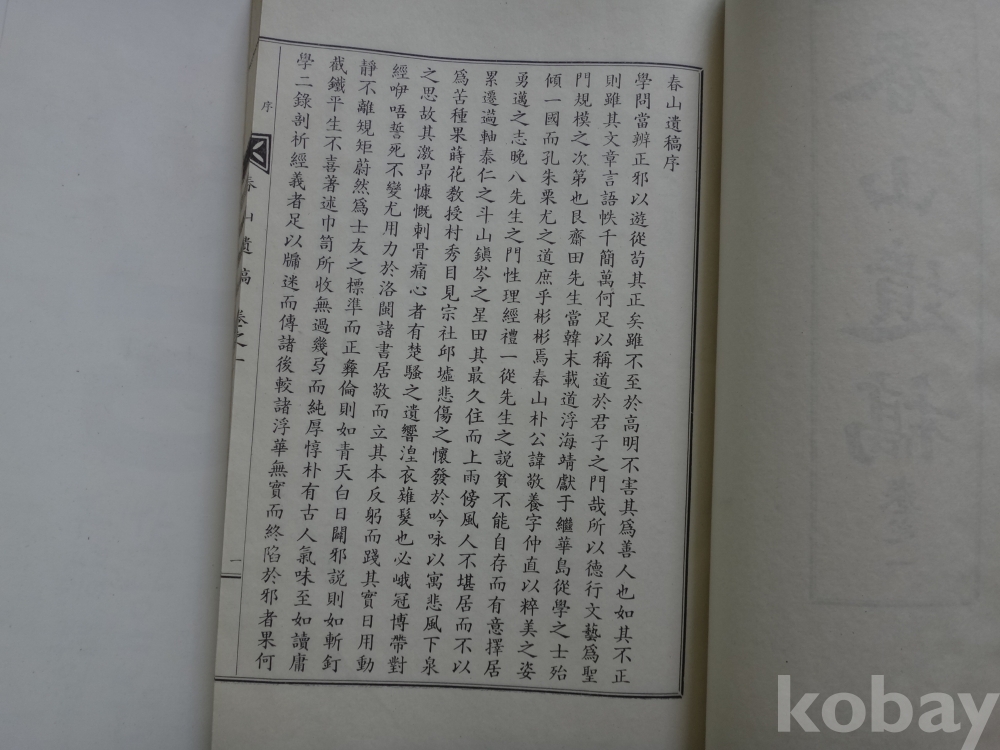 春山遺稿序
學問當辨正邪以遊從苟其正矣雖不至於高明不害其爲善人也如其不正
則雖其文章言語帙千簡萬何足以稱道於君子之門哉所以德行文藝爲聖
門規模之次第也艮齋田先生當韓末載道浮海靖獻于繼華島從學之士殆
傾一國而孔朱栗尤之道庶乎彬彬焉春山朴公諱敬養字仲直以粹美之姿
勇邁之志晚入先生之門性理經禮一從先生之説貧不能自存而有意擇居
累遷過軸泰仁之斗山鎭岑之星田其最久住而上雨傍風人不堪居而不以
爲苦種果蒔花教授村秀目見宗社邱墟悲傷之懷發於吟咏以寓悲風下泉
之思故其激昂慷慨刺骨痛心者有楚騷之遺響湟衣薙髮也必峨冠博帶對
經咿唔誓死不變尤用力於洛閩諸書居敬而立其本反躬而踐其實日用動
靜不離規矩蔚然爲士友之標準而正彜倫則如青天白日闢邪説則如斬釘
截鐵平生不喜著述巾笥所收無過幾弓而純厚惇朴有古人氣味至如讀庸
學二錄剖析經義者足以牖迷而傳諸後較諸浮華無實而終陷於邪者果何
序
春山遺稿 卷之一
一
kobay